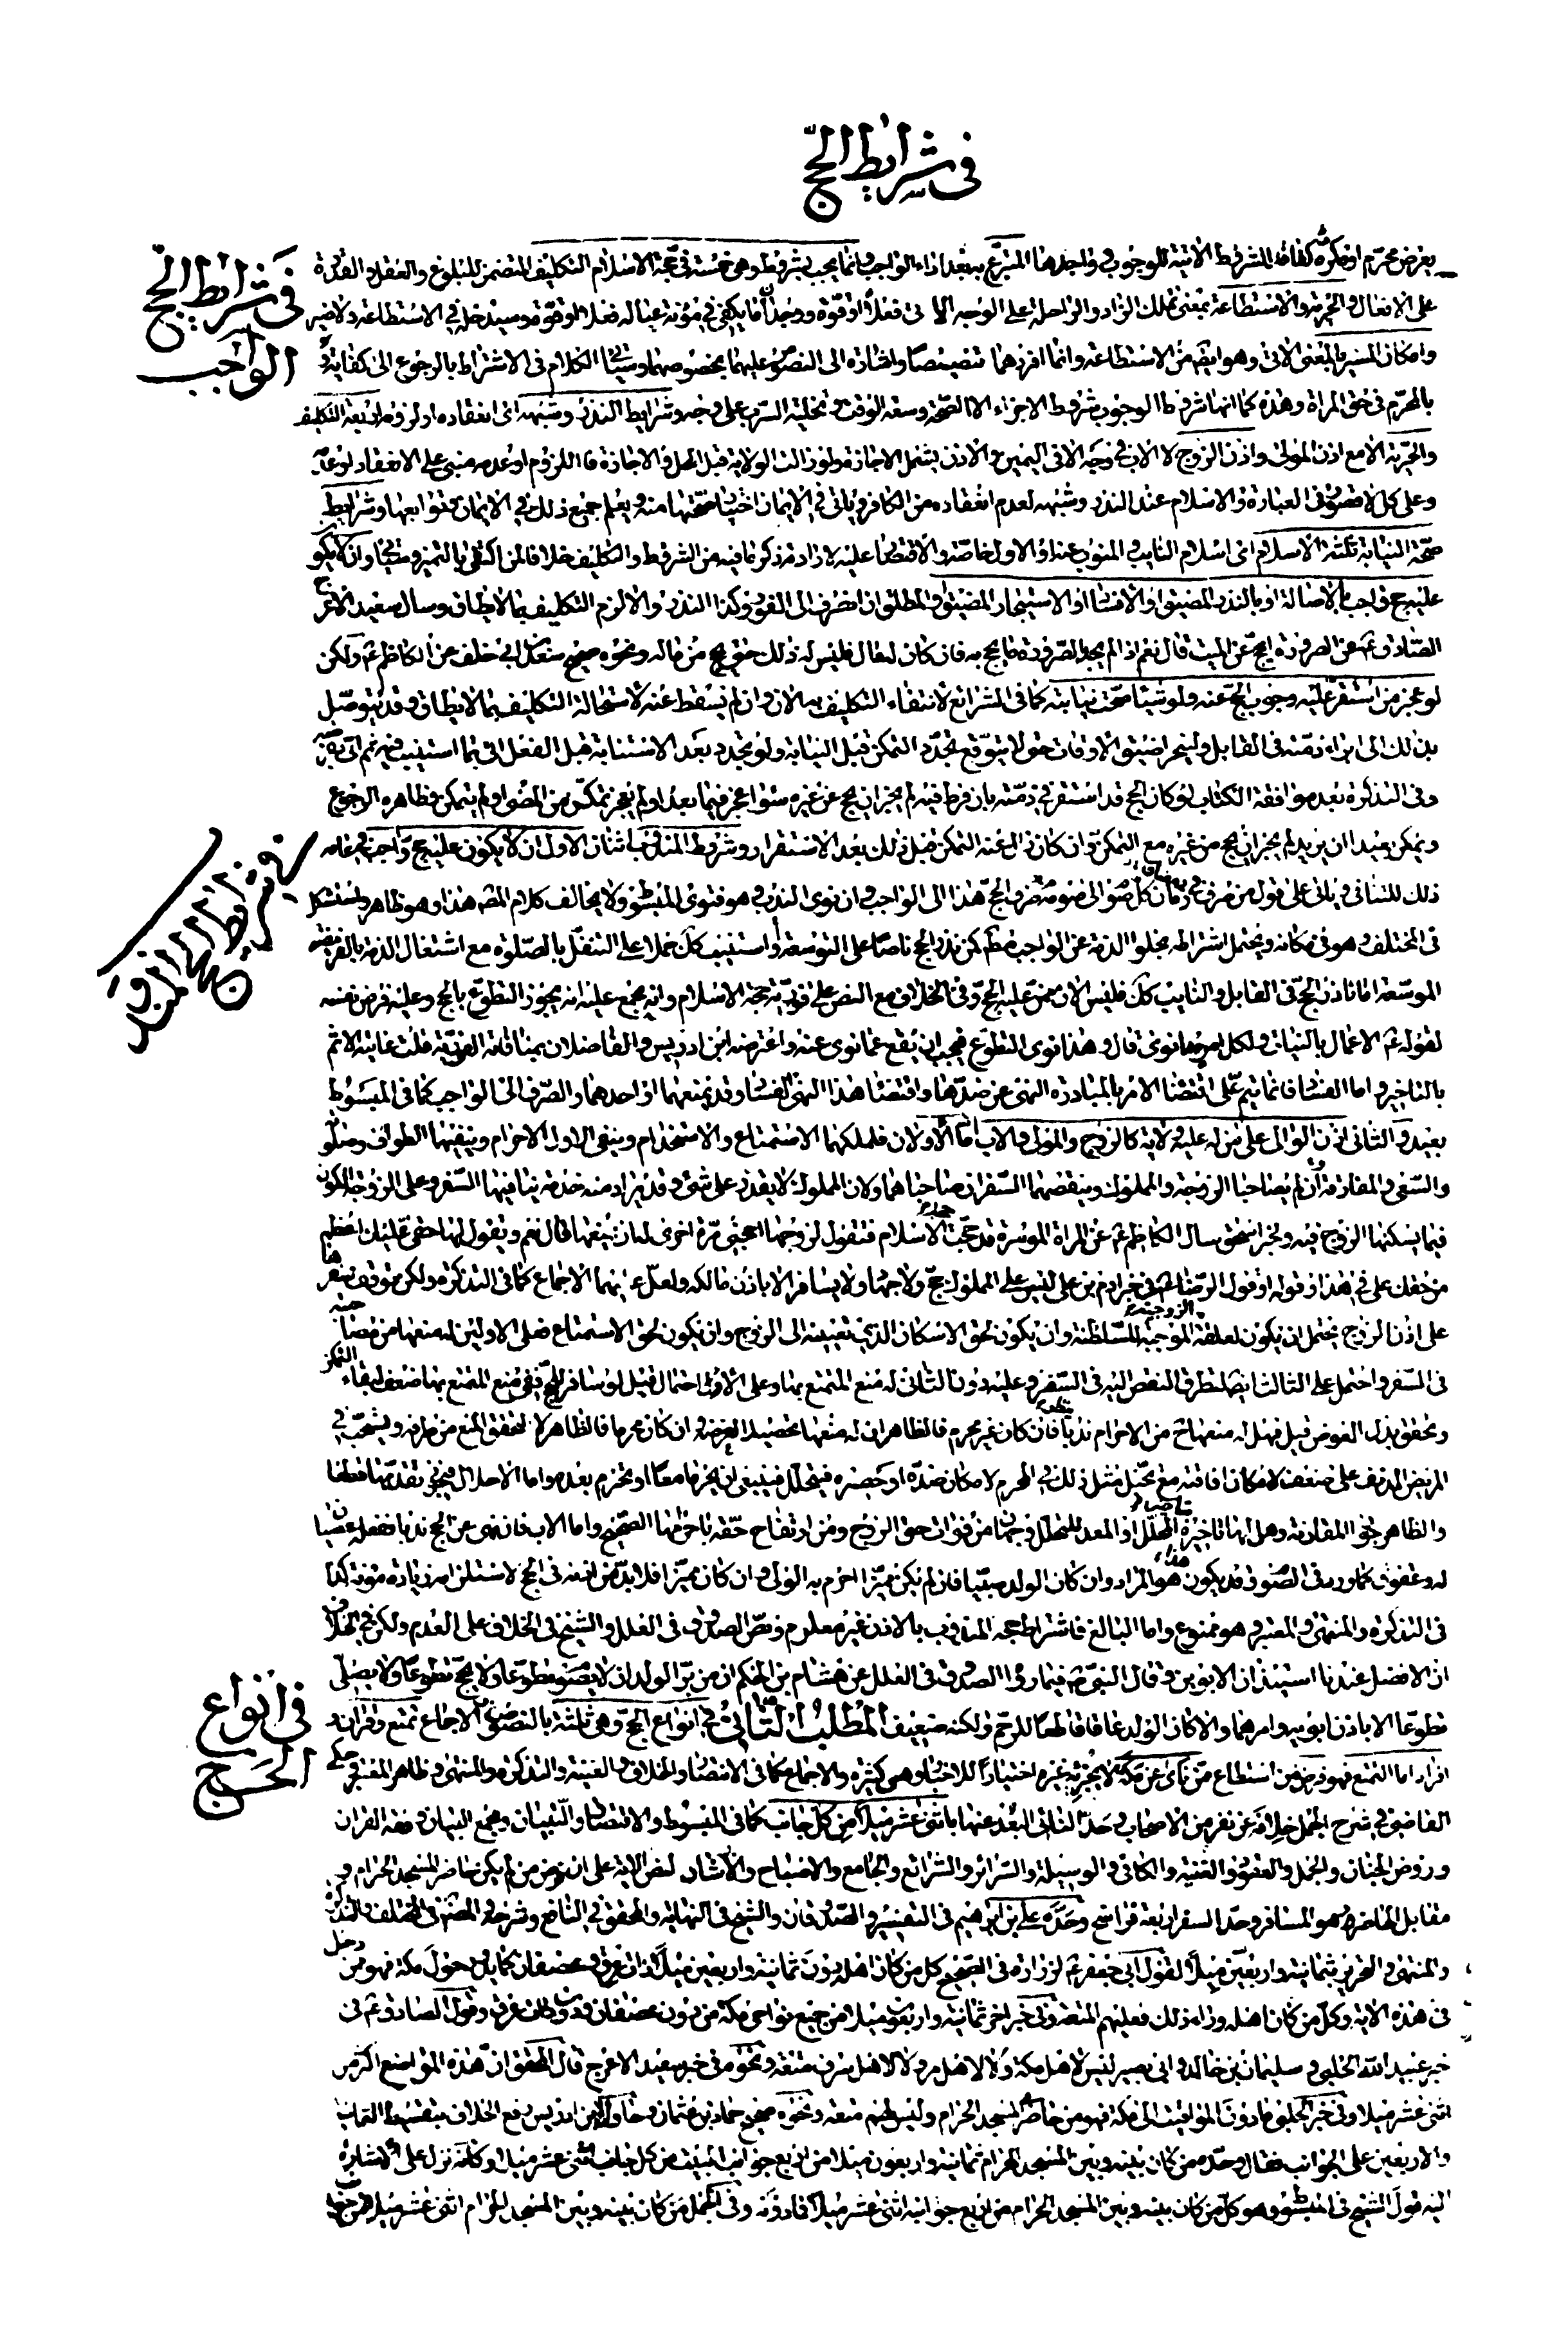 في شرايط الحج
في شرايط الحج
الواجب
يعرض محرم او مكروه كفاقد الشروط الاتية للوجوب وواجدها المتبرع به بعد اداء الواجب وانما يجب بشروط وهي خمسة في حجة الاسلام التكليف المتضمن للبلوغ والعقل والقدرة
على الافعال والحرية والاستطاعة بمعنى تملك الزاد والراحلة على الوجه الاتي فعلا او قوة ووجدان ما يكفي في مؤنة عياله فعلا او قوة وسيدخله في الاستطاعة ولا ضير
وامكان المسير بالمعنى الاتي وهو ايضا من الاستطاعة وانما افردهما تنصيصا واشارة الى النصوص عليهما بخصوصهما وسياتي الكلام في الاشتراط بالرجوع الى كفاية و
بالمحرم في حق المراة وهذه كما انها شروط الوجوب شروط الاجزاء الا الصحة وسعة الوقت و تخلية السرب على وجه وشرايط النذر وشبهه اي انعقاده او لزومه اربعة التكليف
والحرية الا مع اذن المولى واذن الزوج لا الاب في وجه الاتي اليمين والاذن يشمل الاجازة ولو زالت الولاية قبل الحل والاجازة فاللزوم او عدمه مبني على الانعقاد لو
وعلى كل لا قصور في العبارة والاسلام عند النذر وشبهه لعدم انعقاده من الكافر وياتي في الايمان اختيار صحتها منه ويعلم جميع ذلك في الايمان وتوابعها وشرايط
صحة النيابة ثلثة الاسلام اي اسلام النايب والمنوب عنه او الاول خاصة والاقتصار عليه لارادة ذكر ما فيه من الشروط والتكليف خلافا لمن اكتفى بالتميز وان لا يكون
عليه حج واجب بالاصالة او بالنذر المضيق او الافساد او الاستيجار المضيق او المطلق ان انصرف الى الفور وكذا النذر والا لزم التكليف بما لا يطاق وسال سعيد الاعرج
الصادق ع عن الصرورة ايحج عن الميت قال نعم اذا لم يجد الصرورة ما يحج به فان كان له مال فليس له ذلك حتى يحج من ماله ونحوه صحيح سعد بن ابي خلف عن الكاظم ع ولكن
لو عجز من استقر عليه وجوب الحج عنه ولو مشيا صحت نيابته كما في الشرائع لانتفاء التكليف به الان وان لم يسقط عنه لاستحالة التكليف بما لا يطاق وقد يتوصل
بذلك الى ابراء ذمته في القابل وليتحر اضيق الاوقات حتى لا يتوقع تجدد التمكن قبل النيابة ولو تجدد بعد الاستنابة قبل الفعل اتى بما استنيب فيه ثم اتى بفرضه
وفي التذكرة بعد موافقة الكتاب لو كان الحج قد استقر في ذمته بان فرط فيه لم يجز ان يحج عن غيره سواء عجز فيما بعد او لم يعجز تمكن من المضي او لم يتمكن وظاهره الرجوع
ويمكن بعيدا ان يريد لم يجز ان يحج من غيره مع التمكن وان كان زال عنه التمكن قبل ذلك بعد الاستقرار وشروط المندوب اثنان الاول ان لا يكون عليه حج واجب في عامه
في شرايط الحج المندوب
ذلك للتنافي وياتي على قول من صرف في رمضان كل صوم الى صومه صرف الحج هذا الى الواجب وان نوى الندب وهو فتوى المبسوط ولا يخالف كلام المصنف هذا وهو ظاهر واستشكل
في المختلف وهو في مكانه ويحتمل اشتراطه بخلو الذمة عن الواجب مطلقا كمن نذر الحج ناصا على التوسعة او استنيب كذلك حملا على التنفل بالصلوة مع اشتغال الذمة بالفريضة
الموسعة اما ناذر الحج في القابل والنايب كذلك فليس الان ممن عليه الحج وفي الخلاف مع النص على فورية حجة الاسلام وانه مجمع عليه انه يجوز التطوع بالحج وعليه فرض نفسه
لقوله ع الاعمال بالنيات ولكل امرء ما نوى قال وهذا نوى التطوع فيجب ان يقع عما نوى عنه واعترضه ابن ادريس والفاضلان بمنافاته الفورية قلت غايته الاثم
بالتاخير واما الفساد فانما يتم على اقتضاء الامر بالمبادرة النهي عن ضدها واقتضاء هذا النهي الفساد وقد يمنعهما او احدهما والصرف الى الواجب كما في المبسوط
بعيد والثاني اذن الوالي على من له عليه ولاية كالزوج والمولى والاب اما الاولان فلملكهما الاستمتاع والاستخدام وينفي الاول الاحرام وينفيهما الطواف وصلوته
والسعي والمفارقة ان لم يصاحبا الزوجة والمملوك وينقصهما السفر ان صاحباهما ولان المملوك لا يقدر على شيء وقد يراد منه خدمة ينافيها السفر وعلى الزوجة الكون
فيما يسكنها الزوج فيه ولخبر اسحق سال الكاظم ع عن المراة الموسرة قد حجت حجة الاسلام فتقول لزوجها احجني مرة اخرى اله ان يمنعها قال نعم ويقول لها حقي عليك اعظم
من حقك علي في هذا وقوله او قول الرضا ع في خبر ادم بن علي ليس على المملوك حج ولا جهاد ولا يسافر الا باذن مالكه ولعل عليهما الاجماع كما في التذكرة ولكن توقف سفرها
على اذن الزوج يحتمل ان يكون لعلقة الزوجية الموجبة للسلطنة وان يكون لحق الاسكان الذي تعيينه الى الزوج وان يكون لحق الاستمتاع فعلى الاولين له منعها من مصاحبته
في السفر واحتمل على الثالث ايضا لتطرق النقص اليه في السفر وعليه دون الثاني له منع المتمتع بها وعلى الاول احتمال قيل لو سافر للحج ففي منع المتمتع بها ضعف لبقاء التمكن
وتحقق بذل العوض قيل فهل له منعها ح من الاحرام ندبا فان كان غير محرم فالظاهر ان له منعها تحصيلا لغرضه وان كان محرما فالظاهر لا لتحقق المنع من طرفه ويستحب في
المريض المدنف على ضعف لامكان افاقته مع تخيل مثل ذلك في المحرم لامكان صده او حصره فيتحلل فينبغي ان يحرما معا او تحرم بعده واما الاحلال فيجوز تقديمها قطعا
والظاهر جواز المقارنة وهل لها تاخير التحلل او المعد للتحلل وجهان من فوات حق الزوج ومن ارتفاع حقه باحرامها الصحيح واما الاب فان نهى عن الحج ندبا ففعله عصيان
له وعقوق كما ورد في الصوم وقد يكون هذا هو المراد وان كان الولد صبيا فان لم يكن مميزا احرم به الولي وان كان مميزا فلا بد من اذنه في الحج لاستلزامه زيادة مؤنة كذا
في التذكرة والمنتهى والمعتبر وهو ممنوع واما البالغ فاشتراط حجه المندوب بالاذن غير معلوم ونص الصدوق في العلل والشيخ في الخلاف على العدم ولكن في الخلاف
ان الافضل عندنا استيذان الابوين وقال النبي ص فيما رواه الصدوق في العلل عن هشام بن الحكم ان من بر الولد ان لا يصوم تطوعا ولا يحج تطوعا ولا يصلي
تطوعا الا باذن ابويه وامرهما والا كان الولد عاقا قاطعا للرحم ولكنه ضعيف المطلب الثاني في انواع الحج وهي ثلثة بالنصوص والاجماع تمتع وقران و
في انواع
الحج
افراد اما التمتع فهو فرض من استطاع ممن نأى عن مكة لا يجزيه غيره اختيارا للاخبار وهي كثيرة والاجماع كما في الانتصار والخلاف والغنية والتذكرة والمنتهى وظاهر المعتبر وحكى
القاضي في شرح الجمل خلافه عن نفر من الاصحاب وحد النائي البعد عنها باثني عشر ميلا من كل جانب كما في المبسوط والاقتصاد والتبيان ومجمع البيان وفقه القران
وروض الجنان والجمل والعقود والغنية والكافي والوسيلة والسرائر والشرائع والجامع والاصباح والاشارة لنص الاية على انه فرض من لم يكن حاضر المسجد الحرام و
مقابل الحاضر هو المسافر وحد السفر اربعة فراسخ وحده علي بن ابرهيم في التفسير والصدوقان والشيخ في النهاية والمحقق في النافع وشرحه والمصنف في المختلف والتذكرة
والمنتهى والتحرير بثمانية واربعين ميلا لقول ابي جعفر ع لزرارة في الصحيح كل من كان اهله دون ثمانية واربعين ميلا ذات عرق وعسفان كما يدور حول مكة فهو ممن دخل
في هذه الاية وكل من كان اهله وراء ذلك فعليهم المتعة وفي خبر اخر ثمانية واربعون ميلا من جميع نواحي مكة من دون عسفان ودون ذات عرق وقول الصادق ع في
خبر عبيد الله الحلبي وسليمان بن خالد وابي بصير ليس لاهل مكة ولا لاهل مر ولا لاهل سرف متعة ونحوه في خبر سعيد الاعرج قال المحقق ان هذه المواضع اكثر من
اثني عشر ميلا وفي خبر الحلبي ما دون المواقيت الى مكة فهو من حاضري المسجد الحرام وليس لهم متعة ونحوه صحيح حماد بن عثمان وحاول ابن ادريس رفع الخلاف بتقسيط الثمانية
والاربعين على الجوانب فقال وحده من كان بينه وبين المسجد الحرام ثمانية واربعون ميلا من اربع جوانب البيت من كل جانب اثنى عشر ميلا وكانه نزل على الاشارة
اليه قول الشيخ في المبسوط وهو كل من كان بينه وبين المسجد الحرام من اربع جوانبه اثنى عشر ميلا فما دونه وفي الجمل من كان بينه وبين المسجد الحرام اثنى عشر ميلا من جوانب